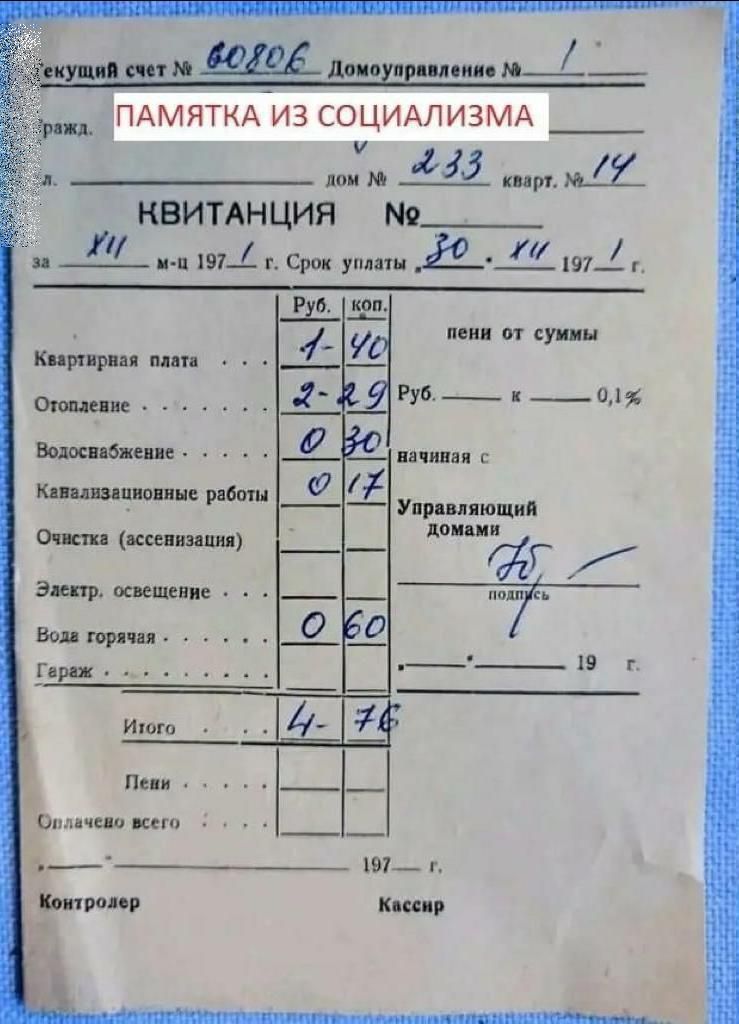 Текущий счет № 60806 Домоуправление № 1
Гражд. ПАМЯТКА ИЗ СОЦИАЛИЗМА
ул. дом № 233 кварт. № 14
КВИТАНЦИЯ №
за XII м-ц 1971 г. Срок уплаты „30" XII 1971 г.
Руб. коп.
пени от суммы
Квартирная плата . . . 1-40
Отопление . . . . . . . 2-29 Руб. к 0,1%
Водоснабжение . . . . . 0 30
начиная с
Канализационные работы 0 17
Управляющий
домами
Очистка (ассенизация)
Электр. освещение . . .
подпись
Вода горячая . . . . . . 0 60
Гараж . . . . . . . . . „ " 19 г.
Итого . . . . 4-76
Пени . . . . .
Оплачено всего . . . .
„ " 197 г.
Контролер Кассир